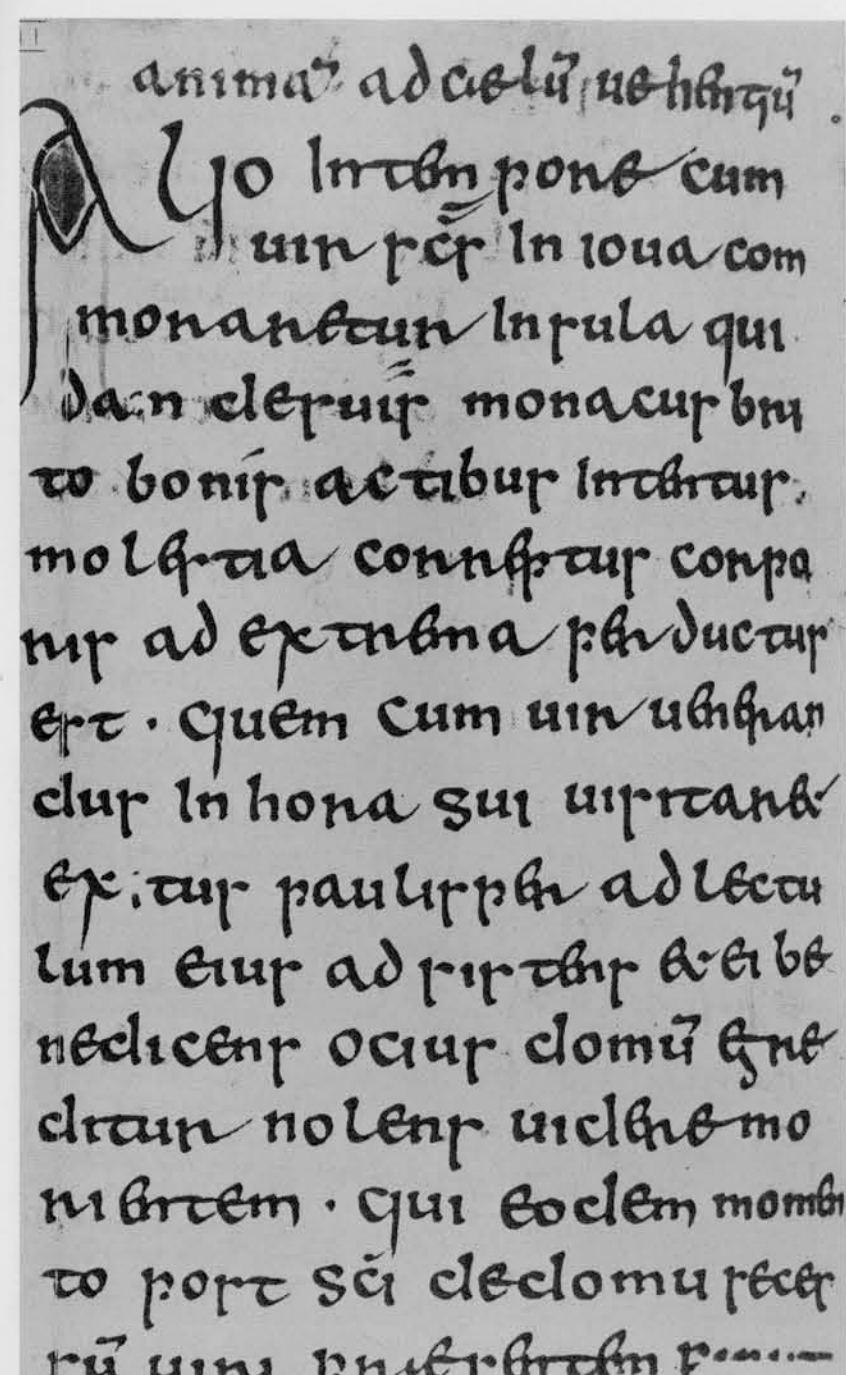 animā ad caelū uehentiū
Alio In tempore cum
uir scs̄ In ioua com
moraretur Insula qui
dam de suis monacus bri
to bonis actibus Intentus
molestia correptus corpo
ris ad extrema perductus
est · quem cum uir ueneran
dus In hora sui uisitar&
exitus paulisper ad lectu
lum eius ad sistens & ei be
nedicens ocius domū egre
ditur nolens uidere mo
rientem · qui eodem momen
to post sc̄i dedomu seces
sū uiri praesentem